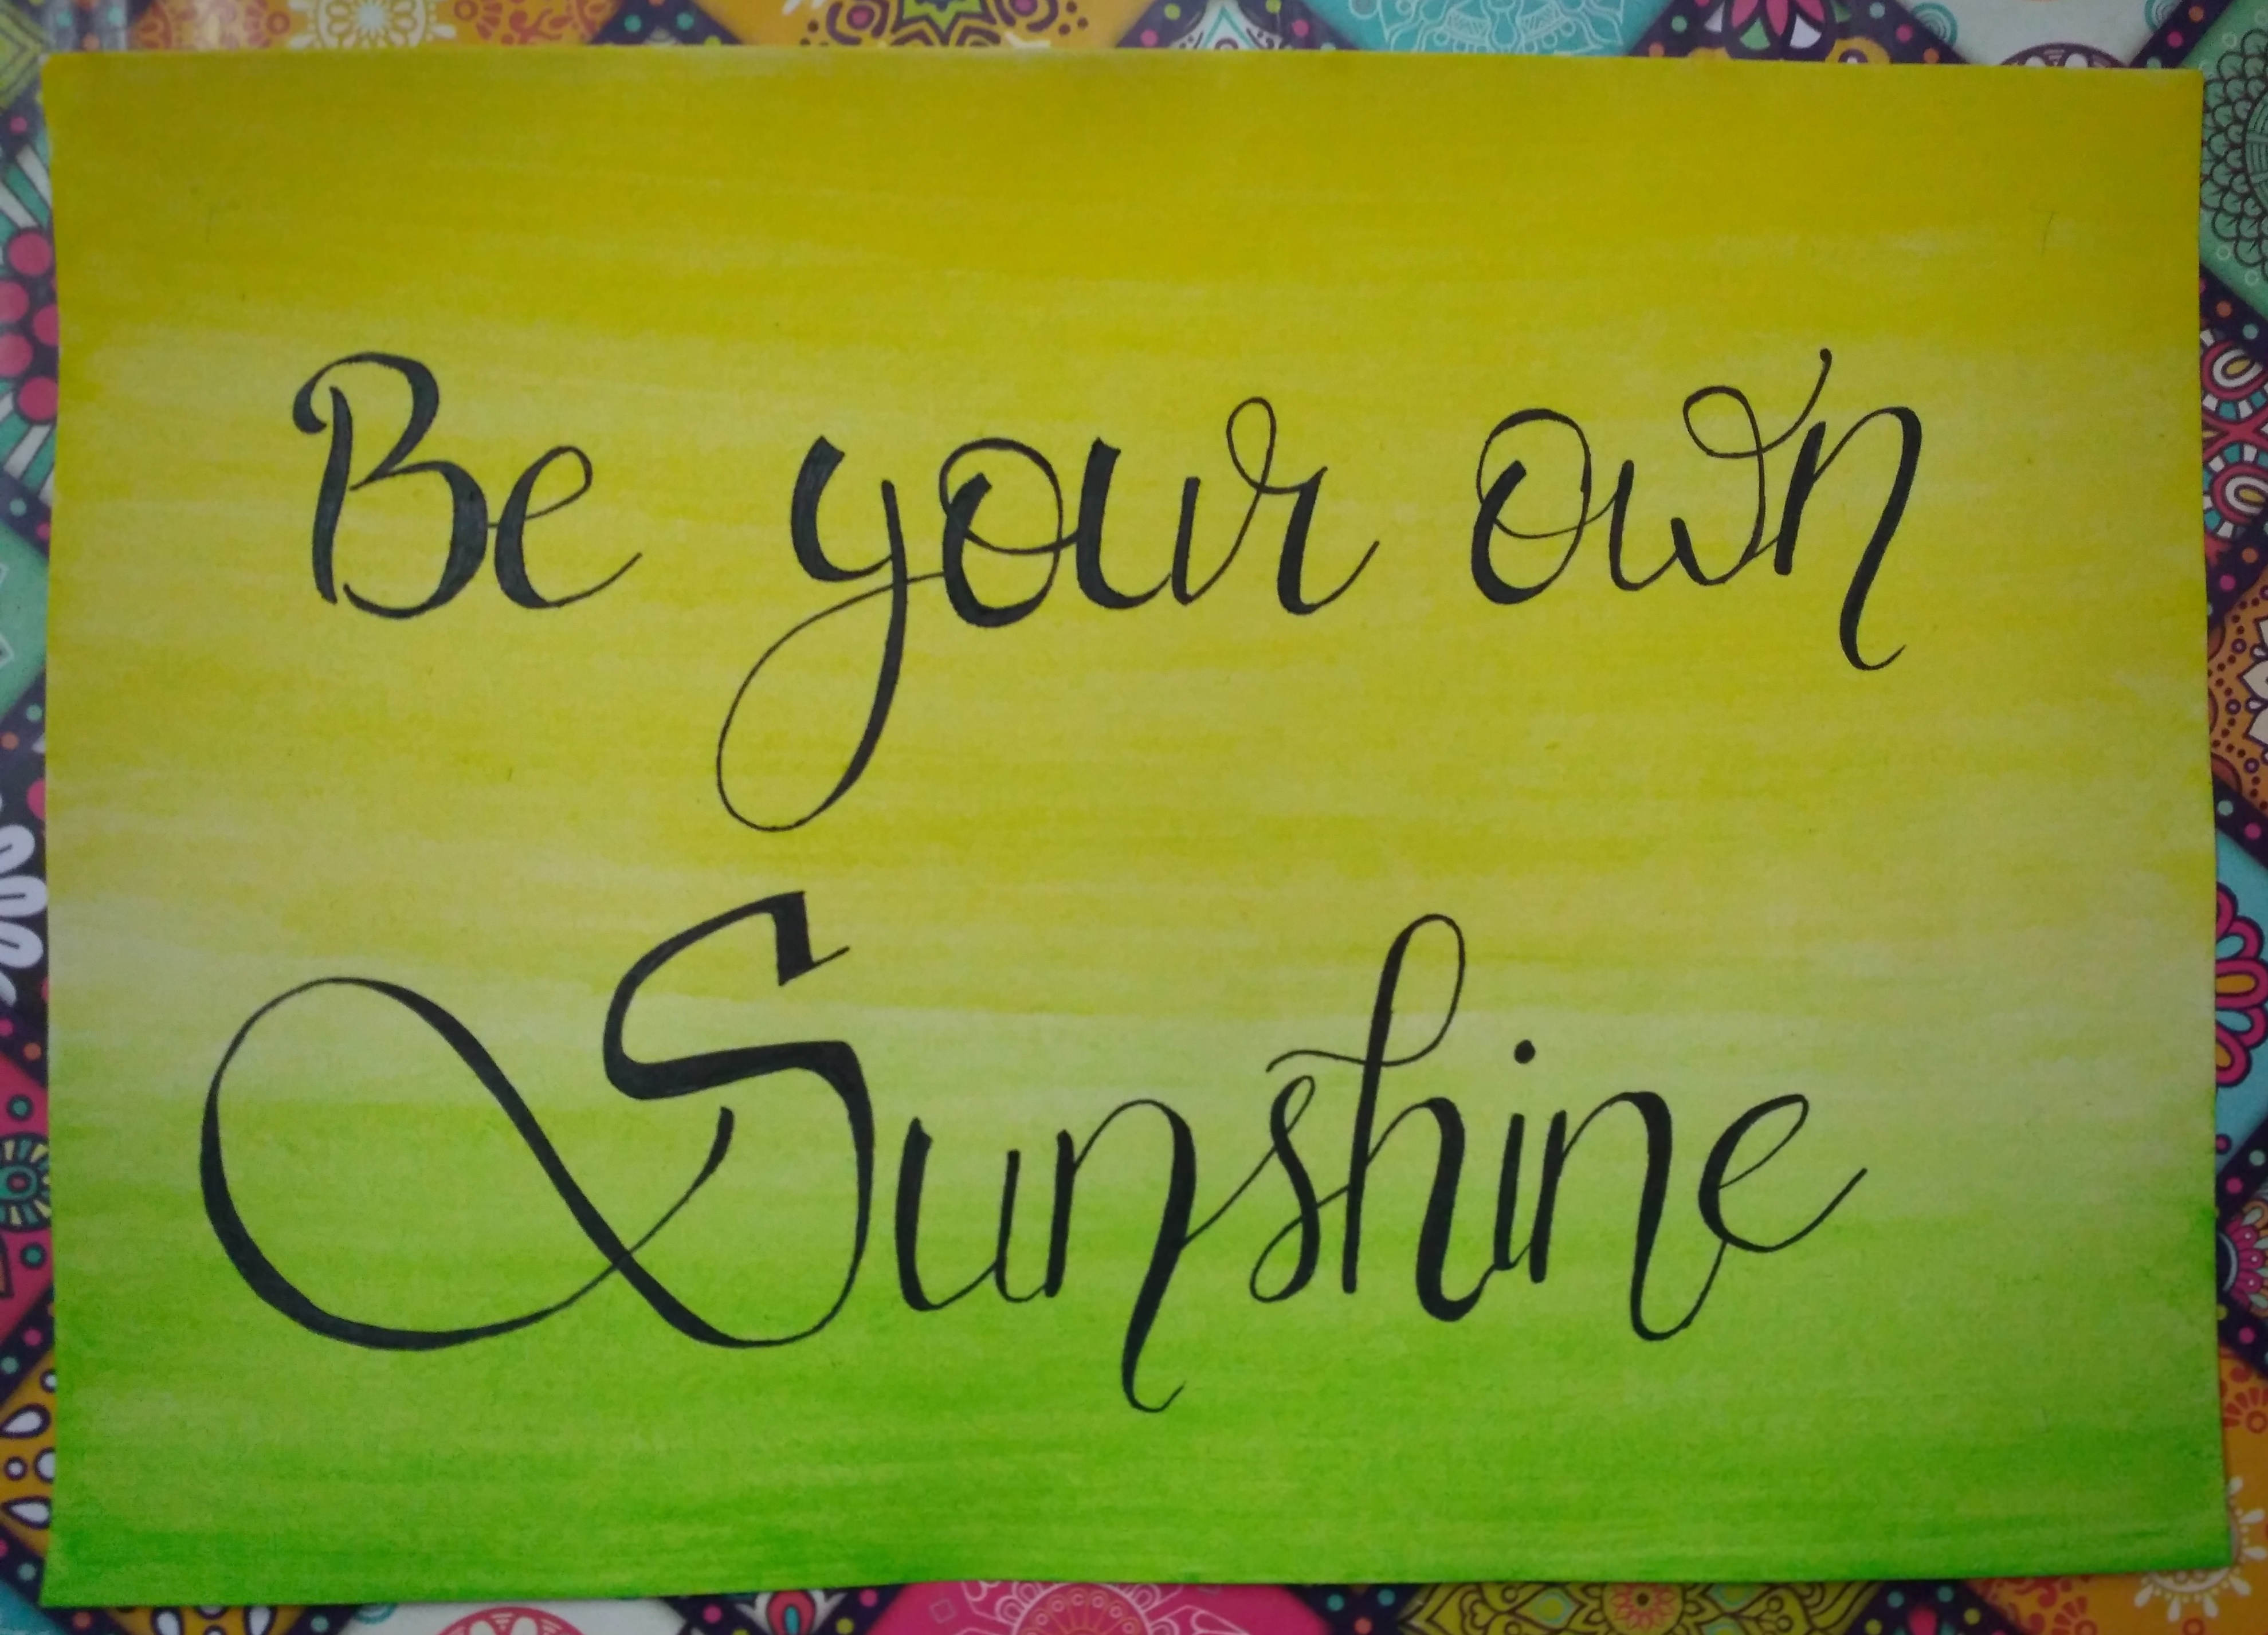 Be your own
Sunshine